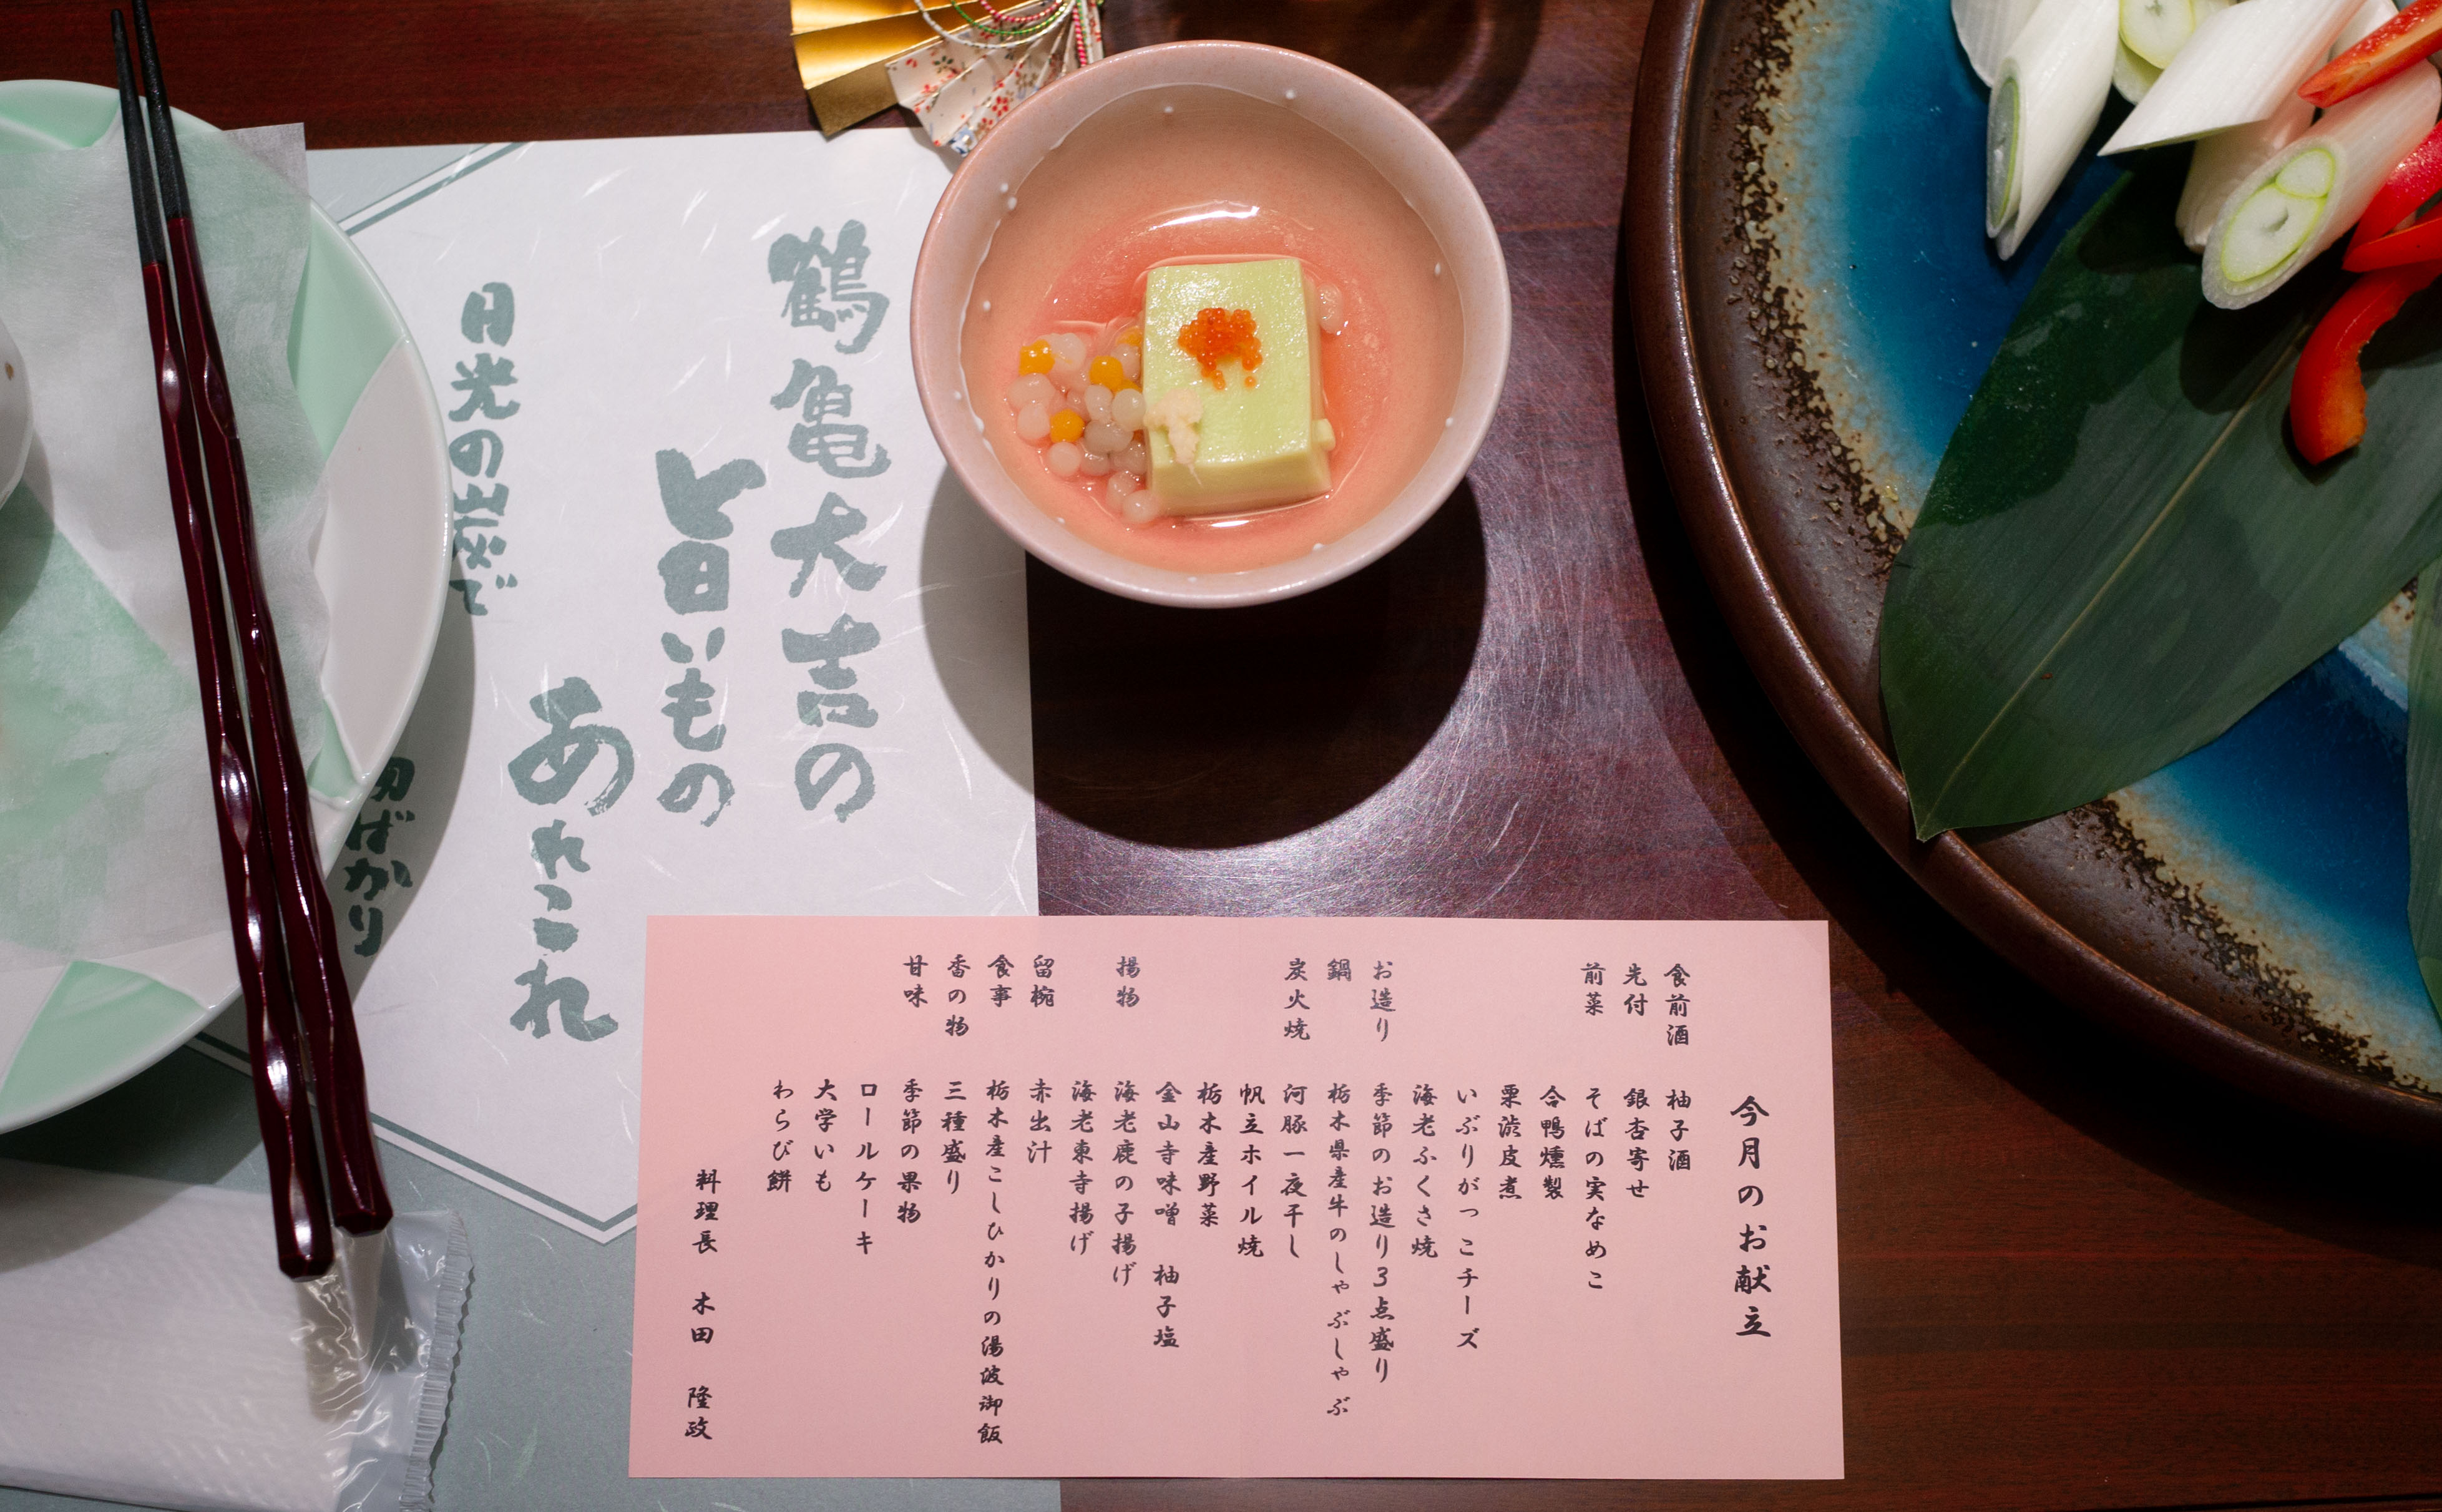 鶴亀大吉の
旨いもの
あれこれ
日光の炭で
ばかり
今月のお献立
食前酒 柚子酒
先付 銀杏寄せ
前菜 そばの実なめこ
合鴨燻製
栗渋皮煮
いぶりがっこチーズ
海老ふくさ焼
お造り 季節のお造り3点盛り
鍋 栃木県産牛のしゃぶしゃぶ
炭火焼 河豚一夜干し
帆立ホイル焼
栃木産野菜
金山寺味噌 柚子塩
揚物 海老鹿の子揚げ
海老東寺揚げ
留椀 赤出汁
食事 栃木産こしひかりの湯波御飯
香の物 三種盛り
甘味 季節の果物
ロールケーキ
大学いも
わらび餅
料理長 木田 隆政